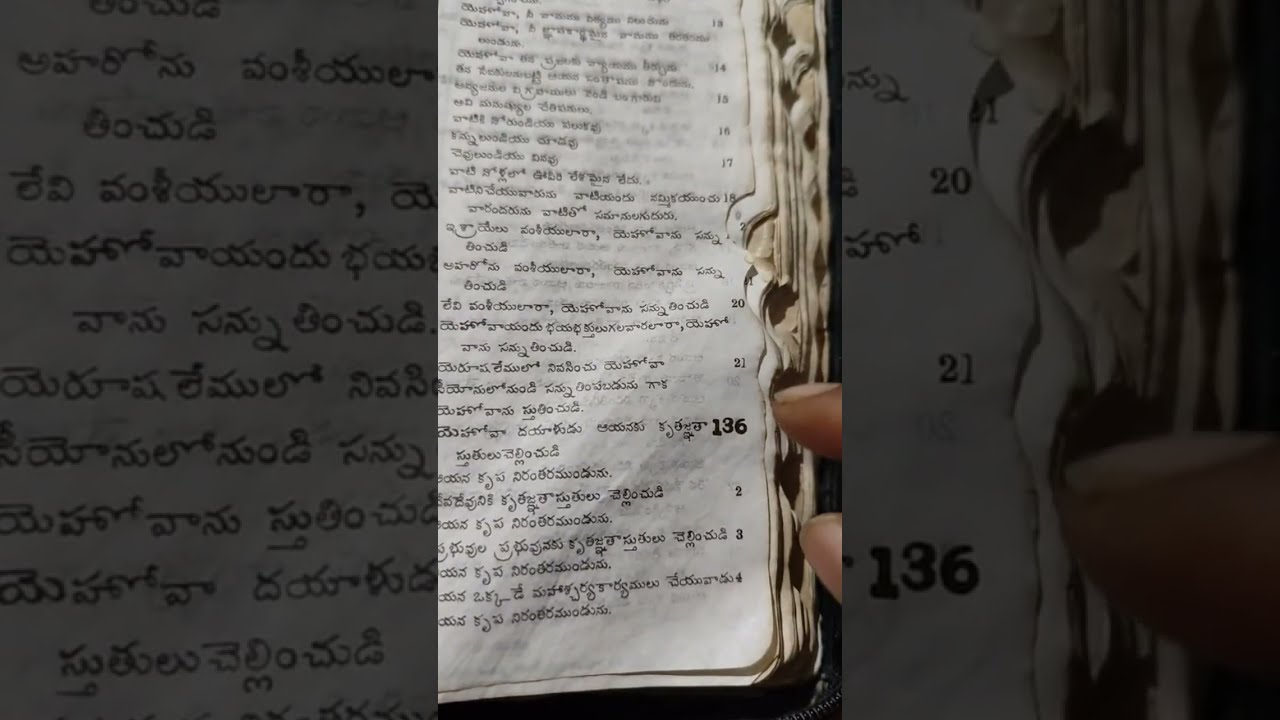 యెహోవా, నీ నామము నిత్యము నిలుచును 13
యెహోవా, నీ జ్ఞాపకార్థమైన నామము తరతరము
లుండును.
యెహోవా తన ప్రజలకు న్యాయము తీర్చును 14
తన సేవకులనుబట్టి ఆయన సంతాపము నొందును.
అన్యజనుల విగ్రహములు వెండి బంగారువి 15
అవి మనుష్యుల చేతిపనులు.
వాటికి నోరుండియు పలుకవు 16
కన్నులుండియు చూడవు
చెవులుండియు వినవు 17
వాటి నోళ్లలో ఊపిరి లేశమైన లేదు.
వాటినిచేయువారును వాటియందు నమ్మికయుంచు 18
వారందరును వాటితో సమానులగుదురు.
ఇశ్రాయేలు వంశీయులారా, యెహోవాను సన్ను
తించుడి
అహరోను వంశీయులారా, యెహోవాను సన్ను
తించుడి
లేవి వంశీయులారా, యెహోవాను సన్నుతించుడి 20
యెహోవాయందు భయభక్తులుగలవారలారా, యెహో
వాను సన్నుతించుడి.
యెరూషలేములో నివసించు యెహోవా 21
సీయోనులోనుండి సన్నుతింపబడును గాక
యెహోవాను స్తుతించుడి.
యెహోవా దయాళుడు ఆయనకు కృతజ్ఞతా 136
స్తుతులుచెల్లించుడి
ఆయన కృప నిరంతరముండును.
దేవదేవునికి కృతజ్ఞతాస్తుతులు చెల్లించుడి 2
ఆయన కృప నిరంతరముండును.
ప్రభువుల ప్రభువునకు కృతజ్ఞతాస్తుతులు చెల్లించుడి 3
ఆయన కృప నిరంతరముండును.
ఆయన ఒక్కడే మహాశ్చర్యకార్యములు చేయువాడు 4
ఆయన కృప నిరంతరముండును.